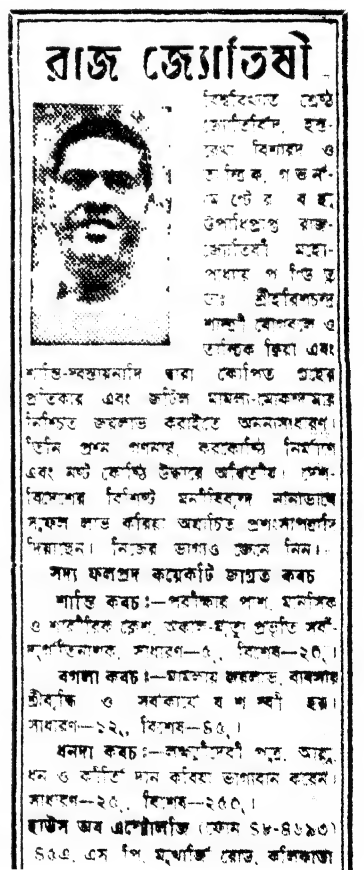 রাজ জ্যোতিষী
বিশ্ববিখ্যাত শ্রেষ্ঠ
জ্যোতির্বিদ, হস্ত-
রেখা বিশারদ ও
তান্ত্রিক, গভর্ন-
মেন্টের বহু
উপাধিপ্রাপ্ত রাজ-
জ্যোতিষী মহো-
পাধ্যায় পণ্ডিত
ডাঃ শ্রীহরিশচন্দ্র
শাস্ত্রী যোগবলে ও
তান্ত্রিক ক্রিয়া এবং
শান্তি-স্বস্ত্যয়নাদি দ্বারা কোপিত গ্রহের
প্রতিকার এবং জটিল মামলা-মোকদ্দমায়
নিশ্চিত জয়লাভ করাইতে অনন্যসাধারণ।
তিনি প্রশ্ন গণনায়, করকোষ্ঠি নির্মাণে
এবং নষ্ট কোষ্ঠি উদ্ধারে অদ্বিতীয়। দেশ-
বিদেশের বিশিষ্ট মনীষিবৃন্দ নানাভাবে
সুফল লাভ করিয়া অযাচিত প্রশংসাপত্রাদি
দিয়াছেন। নিজের ভাগ্যও জেনে নিন।
সদ্য ফলপ্রদ কয়েকটি জাগ্রত কবচ
শান্তি কবচ:—পরীক্ষায় পাশ, মানসিক
ও শারীরিক ক্লেশ, অকাল-মৃত্যু প্রভৃতি সর্ব-
দুর্গতিনাশক, সাধারণ—৫৲, বিশেষ—২০৲।
বগলা কবচ:—মামলায় জয়লাভ, ব্যবসায়
শ্রীবৃদ্ধি ও সর্বকার্যে যশস্বী হয়।
সাধারণ—১২৲, বিশেষ—৪৫৲।
ধনদা কবচ:—লক্ষ্মীদেবী পুত্র, আয়ু,
ধন ও কীর্তি দান করিয়া ভাগ্যবান করেন।
সাধারণ—২৫৲, বিশেষ—২৫০৲।
হাউস অব এস্ট্রোলজি (ফোন ৪৮-৪৬৯৩)
৪৫এ, এস পি, মুখার্জি রোড, কলিকাতা